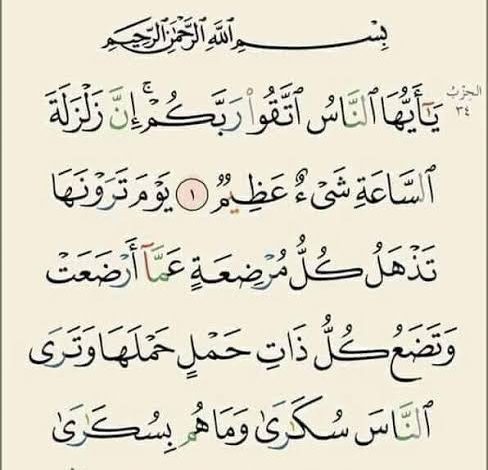 بِسْمِ اللَّهِ الرَّحْمَٰنِ الرَّحِيمِ
الحزب
٣٤
يَٰٓأَيُّهَا ٱلنَّاسُ ٱتَّقُوا۟ رَبَّكُمْ ۚ إِنَّ زَلْزَلَةَ
ٱلسَّاعَةِ شَىْءٌ عَظِيمٌ ١ يَوْمَ تَرَوْنَهَا
تَذْهَلُ كُلُّ مُرْضِعَةٍ عَمَّآ أَرْضَعَتْ
وَتَضَعُ كُلُّ ذَاتِ حَمْلٍ حَمْلَهَا وَتَرَى
ٱلنَّاسَ سُكَٰرَىٰ وَمَا هُم بِسُكَٰرَىٰ